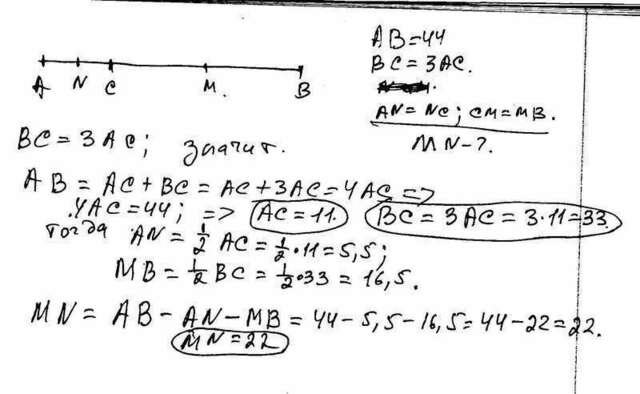 AB=44
BC=3AC.
AN=NC; CM=MB.
MN-?.
A N C M. B
BC=3AC; значит.
AB=AC+BC=AC+3AC=4AC=>
.4AC=44; => AC=11. BC=3AC=3·11=33.
тогда AN=½AC=½·11=5,5;
MB=½BC=½·33=16,5.
MN=AB-AN-MB=44-5,5-16,5=44-22=22.
MN=22